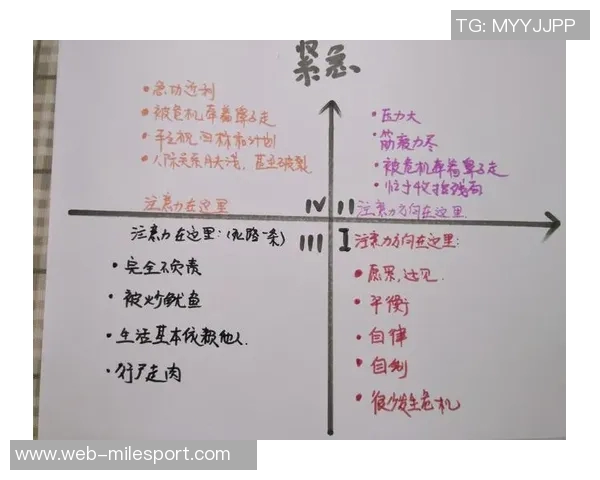 TG: MYYJJPP
紧急
• 急功近利
• 被危机牵着鼻子走
• 轻视目标和计划
• 人际关系肤浅，甚至破裂
注意力在这里
IV
• 压力大
• 筋疲力尽
• 被危机牵着鼻子走
• 忙于收拾残局
II
注意力方向在这里
注意力在这里：（死路一条）
III
• 完全不负责
• 被炒鱿鱼
• 生活基本依赖他人
• 行尸走肉
I
注意力方向在这里：
• 愿景，远见
• 平衡
• 自律
• 自制
• 很少发生危机
www.web-milesport.com